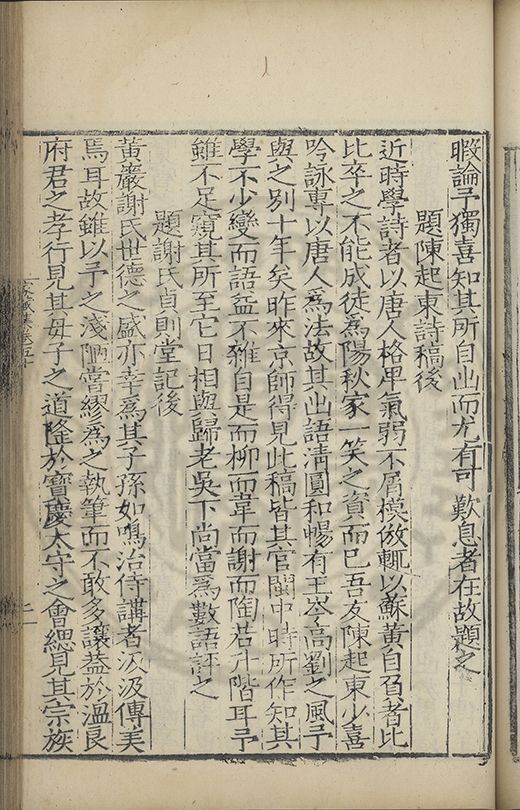 暇論予獨喜知其所自出而尤有可歎息者在故題之
題陳起東詩稿後
近時學詩者以唐人格卑氣弱不屑模倣輒以蘇黃自負者比
比卒之不能成徒爲陽秋家一笑之資而已吾友陳起東少喜
吟詠專以唐人爲法故其出語清圓和暢有王岑高劉之風予
與之別十年矣昨來京師得見此稿皆其官閩中時所作知其
學不少變而語益不雜自是而柳而韋而謝而陶若升階耳予
雖不足窺其所至它日相與歸老吳下尚當爲數語評之
題謝氏貞則堂記後
黃巖謝氏世德之盛亦幸爲其子孫如鳴治侍講者汲汲傳美
焉耳故雖以予之淺陋嘗繆爲之執筆而不敢多讓葢於溫良
府君之孝行見其母子之道隆於寶慶太守之會緫見其宗族